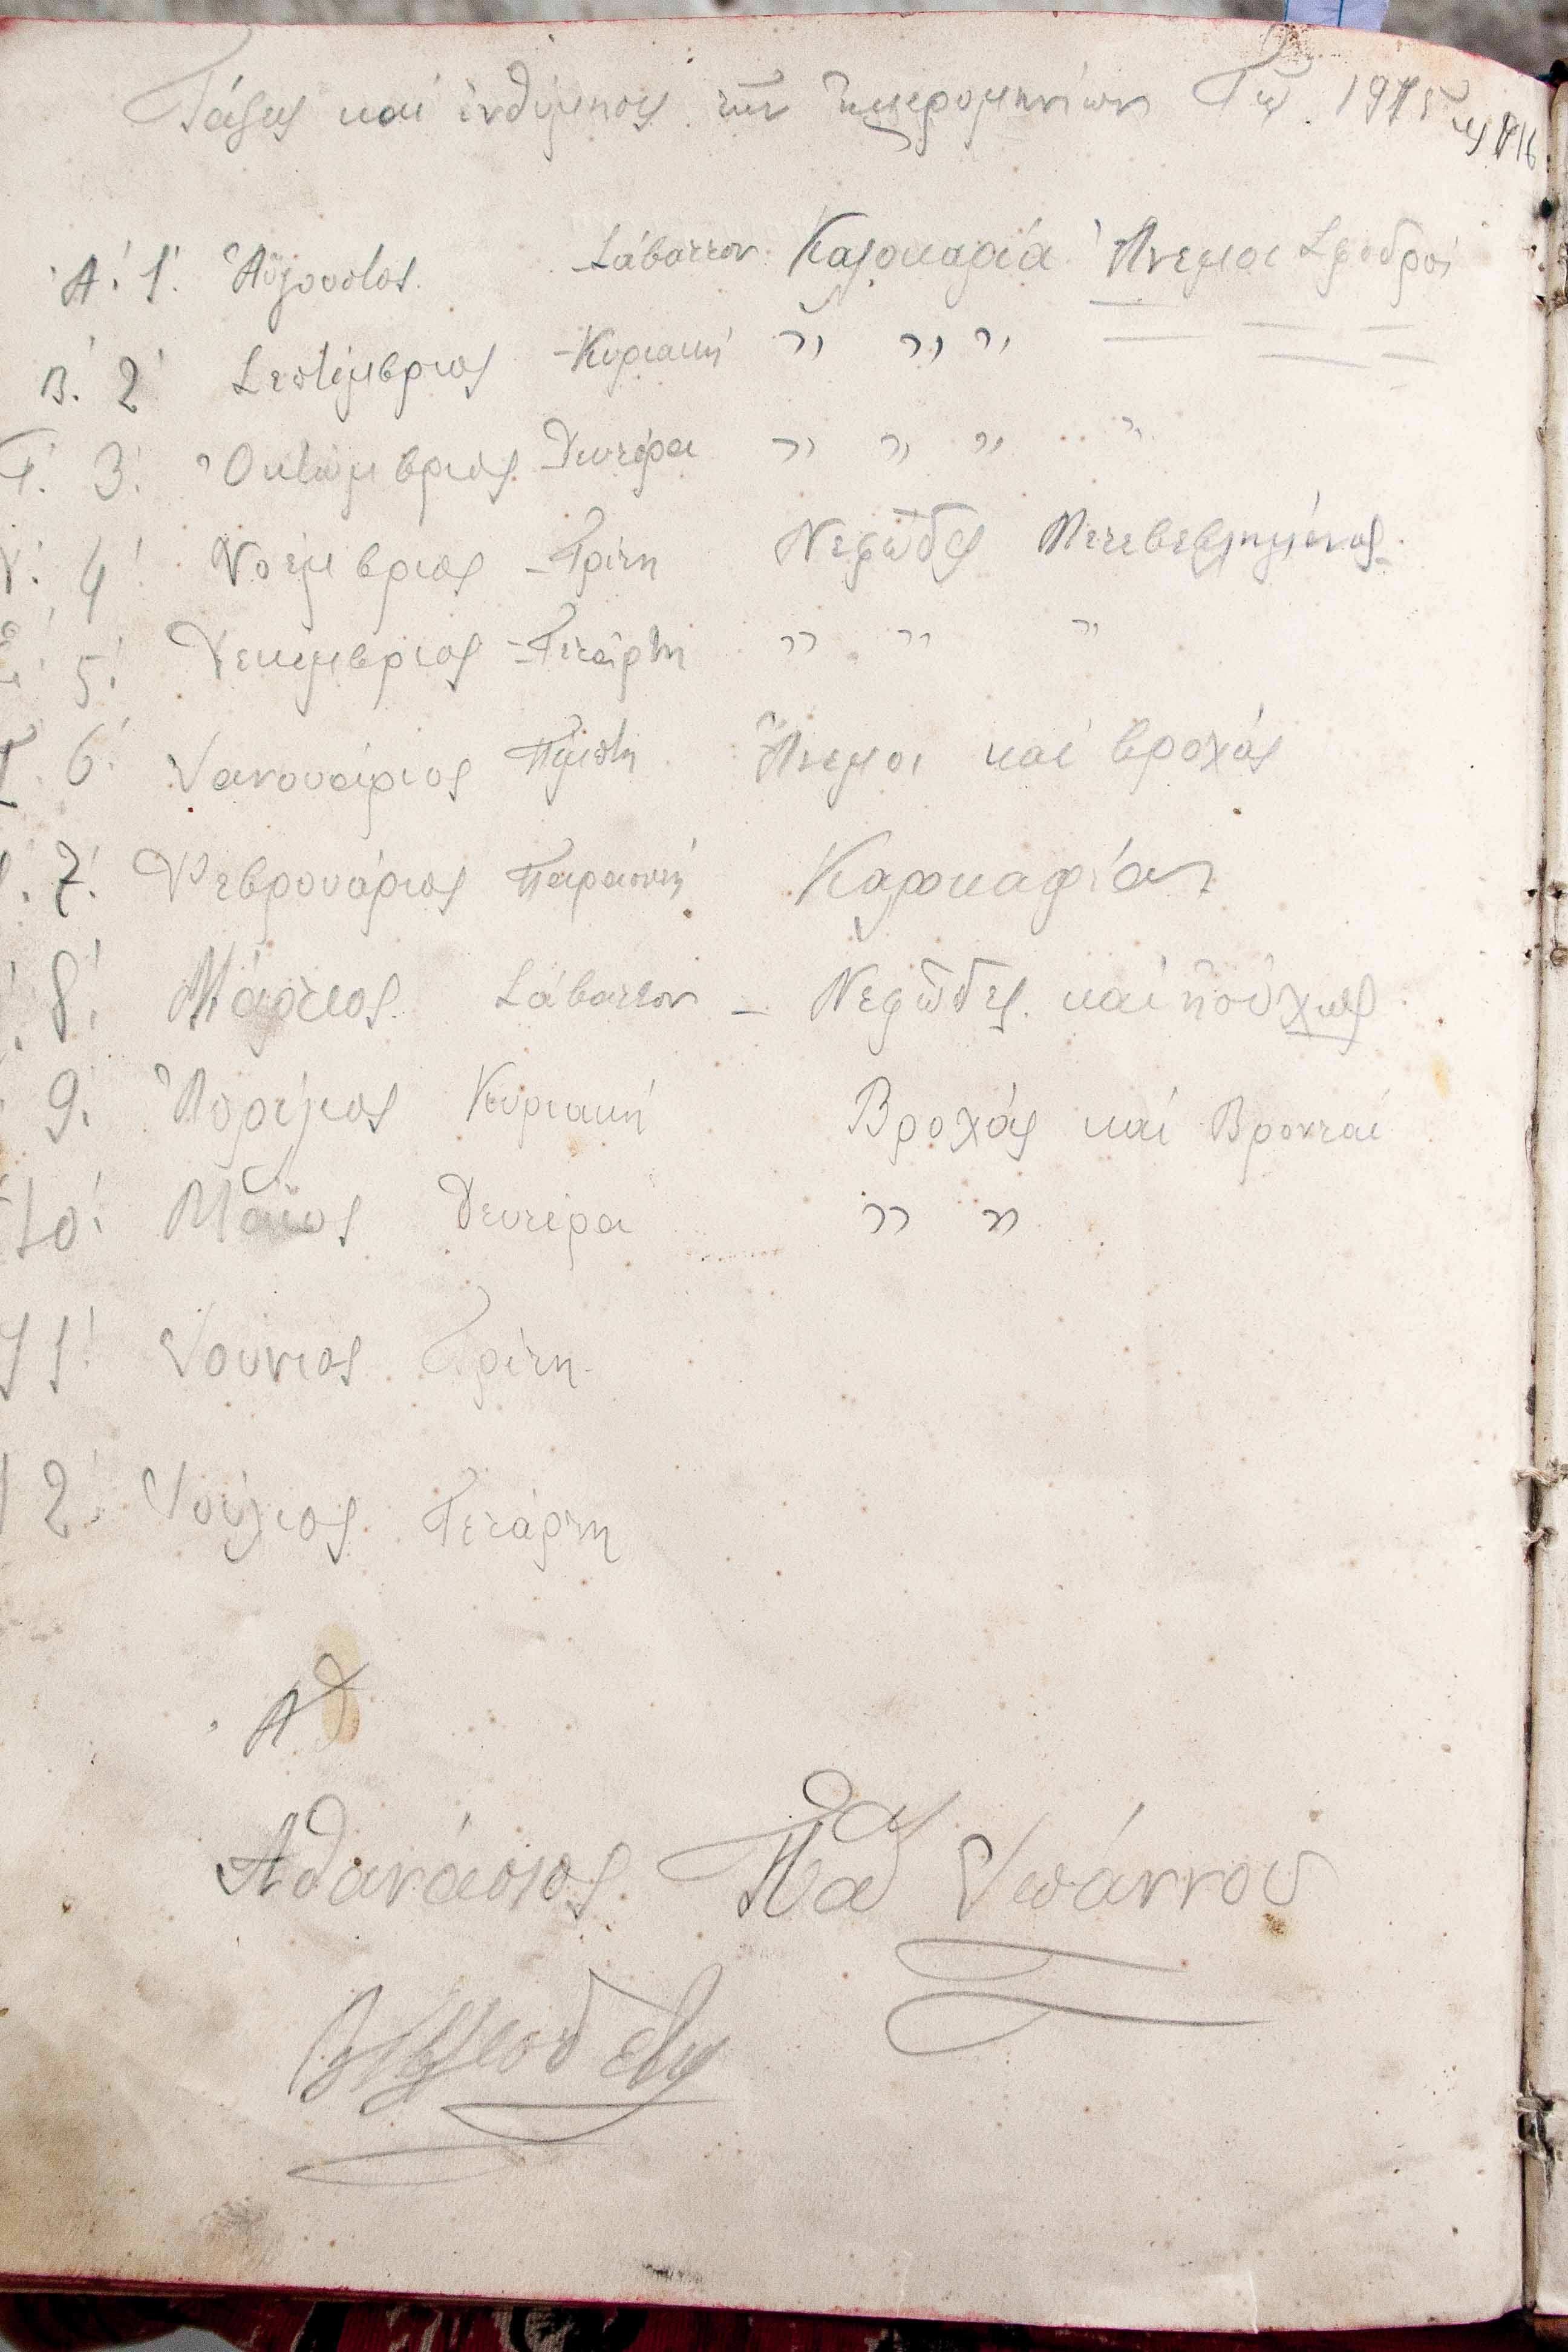 Τάξις καί ἐνθύμησις τῶν ἡμερομηνίων Τῷ 1915
Α΄. 1΄. Αὔγουστος. - Σάβαττον Καλοκαιρία Ἄνεμοι Σφοδροί
Β΄. 2΄ Σεπτέμβριος - Κυριακή " " "
Γ΄. 3΄. Ὀκτώμβριος - Δευτέρα " " " "
Δ΄. 4΄ Νοέμβριος - Τρίτη Νεφῶδες Μεταβεβλημένος.
5΄. Δεκέμβριος - Τετάρτη " " "
6΄. Ιανουάριος Πέμπτη Ἄνεμοι καί βροχάς
7΄. Φεβρουάριος Παρασκευή Καλοκαιρίαν
8΄. Μάρτιος. Σάβαττον - Νεφῶδες. καί ἡσύχως
9. Ἀπρίλιος Κυριακή Βροχάς καί Βρονταί
10΄. Μάϊος Δευτέρα " "
11΄ Ιούνιος Τρίτη
12. Ιούλιος Τετάρτη
Αθ
Αθανάσιος Παπα Ιωάννου